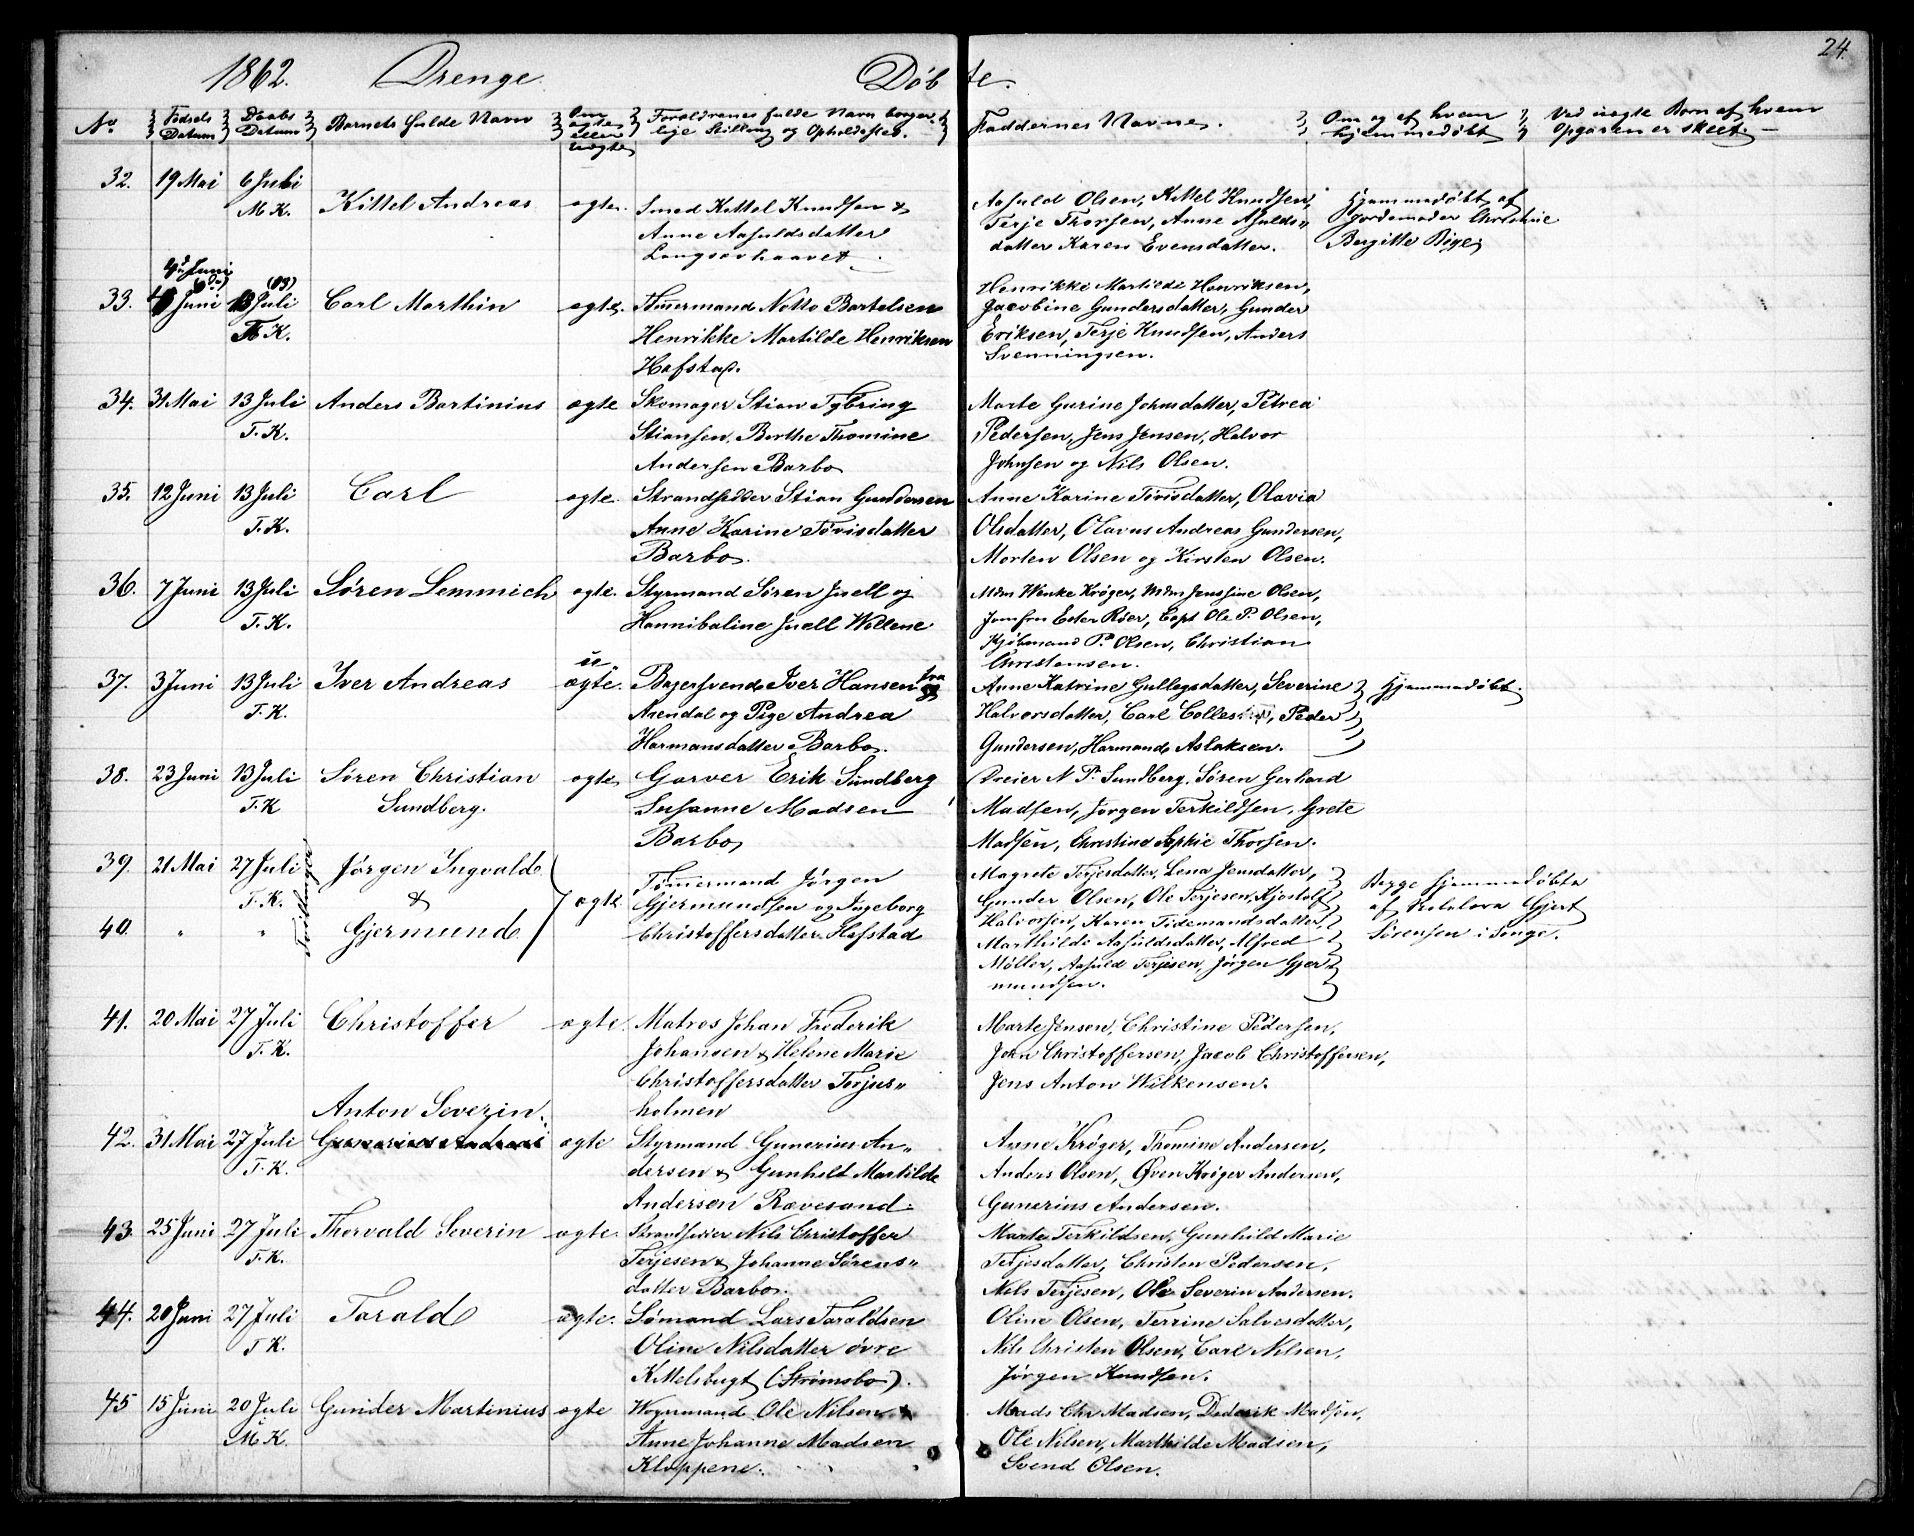 1862. Drenge. Døbte.
24.
No
Fødsels Datum
Daabs Datum
Barnets fulde Navn
Om ægte eller uægte
Forældrenes fulde Navn borger-
lige Stilling og Opholdssted.
Faddernes Navne.
Om og af hvem
hjemmedøbt
Ved uægte Born af hvem
Opgaven er skeet.
32. 19 Mai 6 Juli
M K. Kittel Andreas ægte. Smed Kittel Knudsen &
Anne Aasuldsdatter
Langsævhaavet
Aasuld Olsen, Kittel Knudsen,
Terje Thorsen, Anne Asulds-
datter Karen Evensdatter.
Hjemmedøbt af
Jordemoder Christine
Bergitte Bige
4de Juni
33. Juni 13 Juli Carl Marthin ægte. Tømermand Notto Bartelsen
T. K. Henrikke Martilde Henriksen
Hofstad.
Henrikke Martilde Henriksen,
Jacobine Gundersdatter, Gunder
Eriksen, Terje Knudsen, Anders
Svenningsen.
34. 31 Mai 13 Juli Anders Bartinius ægte Skomager Stian Tybring
T. K. Stiansen, Berthe Thomine
Andersen Barbo
Marte Gurine Johnsdatter, Petrea
Pedersen, Jens Jensen, Halvor
Johnsen og Nils Olsen.
35. 12 Juni 13 Juli Carl ægte. Strandsidder Stian Gundersen
T. K. Anne Karine Tovisdatter
Barbo.
Anne Karine Tovisdatter, Olavia
Olsdatter, Olavus Andreas Gundersen,
Morten Olsen og Kirsten Olsen.
36. 7 Juni 13 Juli Søren Lemmich ægte. Styrmand Søren Juell og
T. K. Hannibaline Juell Wollene
Mdm Wenke Krøger, Mdm Jensine Olsen,
Jomfru Ester Röer, Capt Ole P. Olsen,
Kjøbmand P. Olsen, Christian
Christensen.
37. 3 Juni 13 Juli Iver Andreas u-
ægte. Bagersvend Iver Hansen fra
T. K. Arendal og Pige Andrea
Harmansdatter Barbo.
Anne Katrine Gullegsdatter, Severine
Halvorsdatter, Carl, Peder
Gundersen, Harmand Aslaksen.
Hjemmedøbt.
38. 23 Juni 13 Juli Søren Christian ægte Garver Erik Sundberg
T. K Sundberg. Susanne Madsen
Barbo
Dreier N P. Sundberg, Søren Gerhard
Madsen, Jørgen Terkildsen, Grete
Madsen, Christine Sophie Thorsen.
39. 21 Mai 27 Juli Jørgen Ingvald
T. K. &
40. " " Gjermund
Tvillinger
ægte
Tømermand Jørgen
Gjermundsen og Ingeborg
Christoffersdatter Hofstad
Magrete Terjesdatter, Lena Jensdatter,
Gunder Olsen, Ole Terjesen, Kjostolf
Halvorsen, Karen Tidemandsdatter,
Marthilde Aasuldsdatter, Alfred
Møller, Aasuld Terjesen, Jørgen Gjer-
mundsen.
Begge hjemmedøbte
af Gjert
Sørensen i Songe.
41. 20 Mai 27 Juli Christoffer ægte. Matros Johan Frederik
T. K. Johansen & Helene Marie
Christoffersdatter Terjus-
holmen
Marte Jensen, Christine Pedersen,
John Christoffersen, Jacob Christoffersen,
Jens Anton Wilkensen.
Anton Severin.
42. 31 Mai 27 Juli Gunerius Andreas ægte Styrmand Gunerius An-
T. K. dersen & Gunhilt Martilde
Andersen Rævesand.
Anne Krøger, Thomine Andersen,
Anders Olsen, Øven Krøger Andersen,
Gunerius Andersen.
43. 25 Juni 27 Juli Thorvald Severin ægte. Strandsidder Nils Christoffer
T. K. Terjesen & Johanne Sørens-
datter Barbo.
Marte Terkildsen, Gunhild Marie
Terjesdatter, Christen Pedersen,
Nels Terjesen, Ole Severin Andersen.
44. 20 Juni 27 Juli Tarald ægte. Sømand Lars Taraldsen
T K. Oline Nilsdatter øvre
Kittelsbugt (Strømsbo).
Oline Olsen, Terrine Salvesdatter,
Nils Christen Olsen, Carl Nilsen,
Jørgen Knudsen.
45 15 Juni 20 Juli Gunder Martinius ægte Wognmand Ole Nilsen &
M K. Anne Johanne Madsen
Kloppene.
Mads Chr Madsen, Dederik Madsen,
Ole Nilsen, Marthilde Madsen,
Svend Olsen.